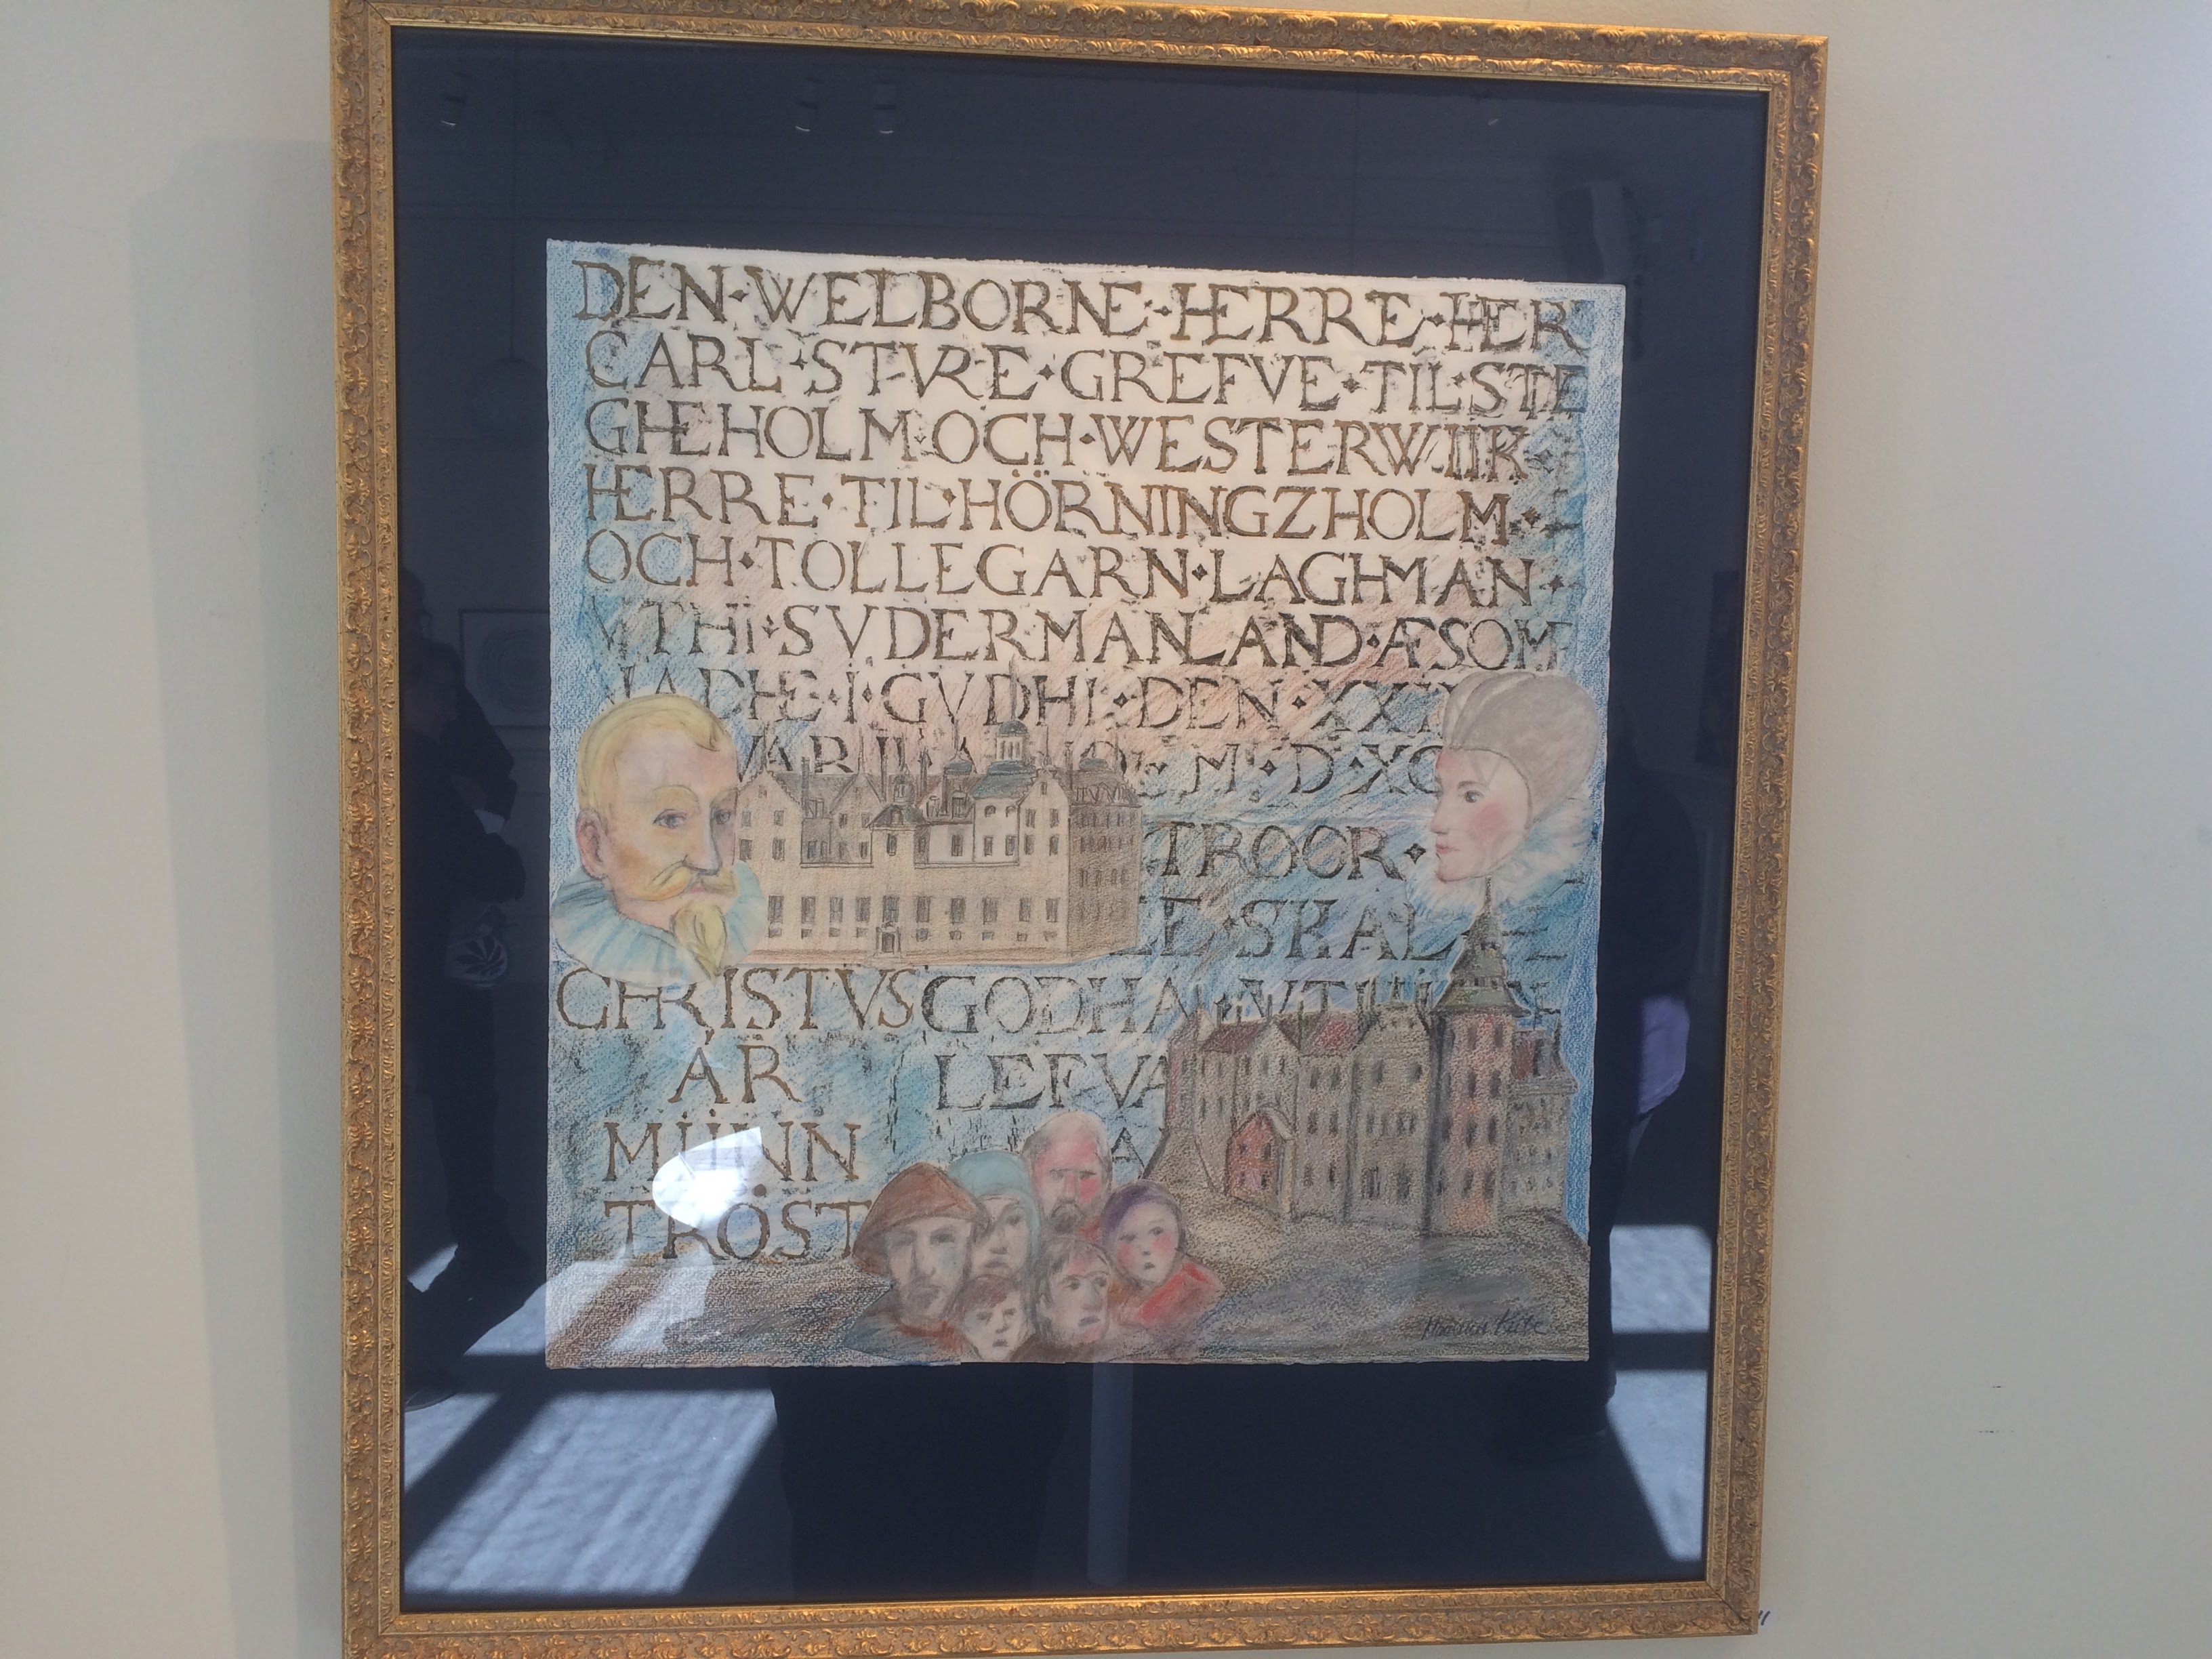 DEN·WELBORNE·HERRE·HER
CARL·STVRE·GREFVE·TIL·STE
GHEHOLM·OCH·WESTERWIIK·
HERRE·TIL·HÖRNINGZHOLM·
OCH·TOLLEGARN·LAGHMAN·
VTHI·SVDERMANLAND·ÆSOM
I·GVDHI·DEN·
M·D·
TROOR·
SKAL
CHRISTVS GODHA
ÄR LEFVA
MIIN
TRÖST